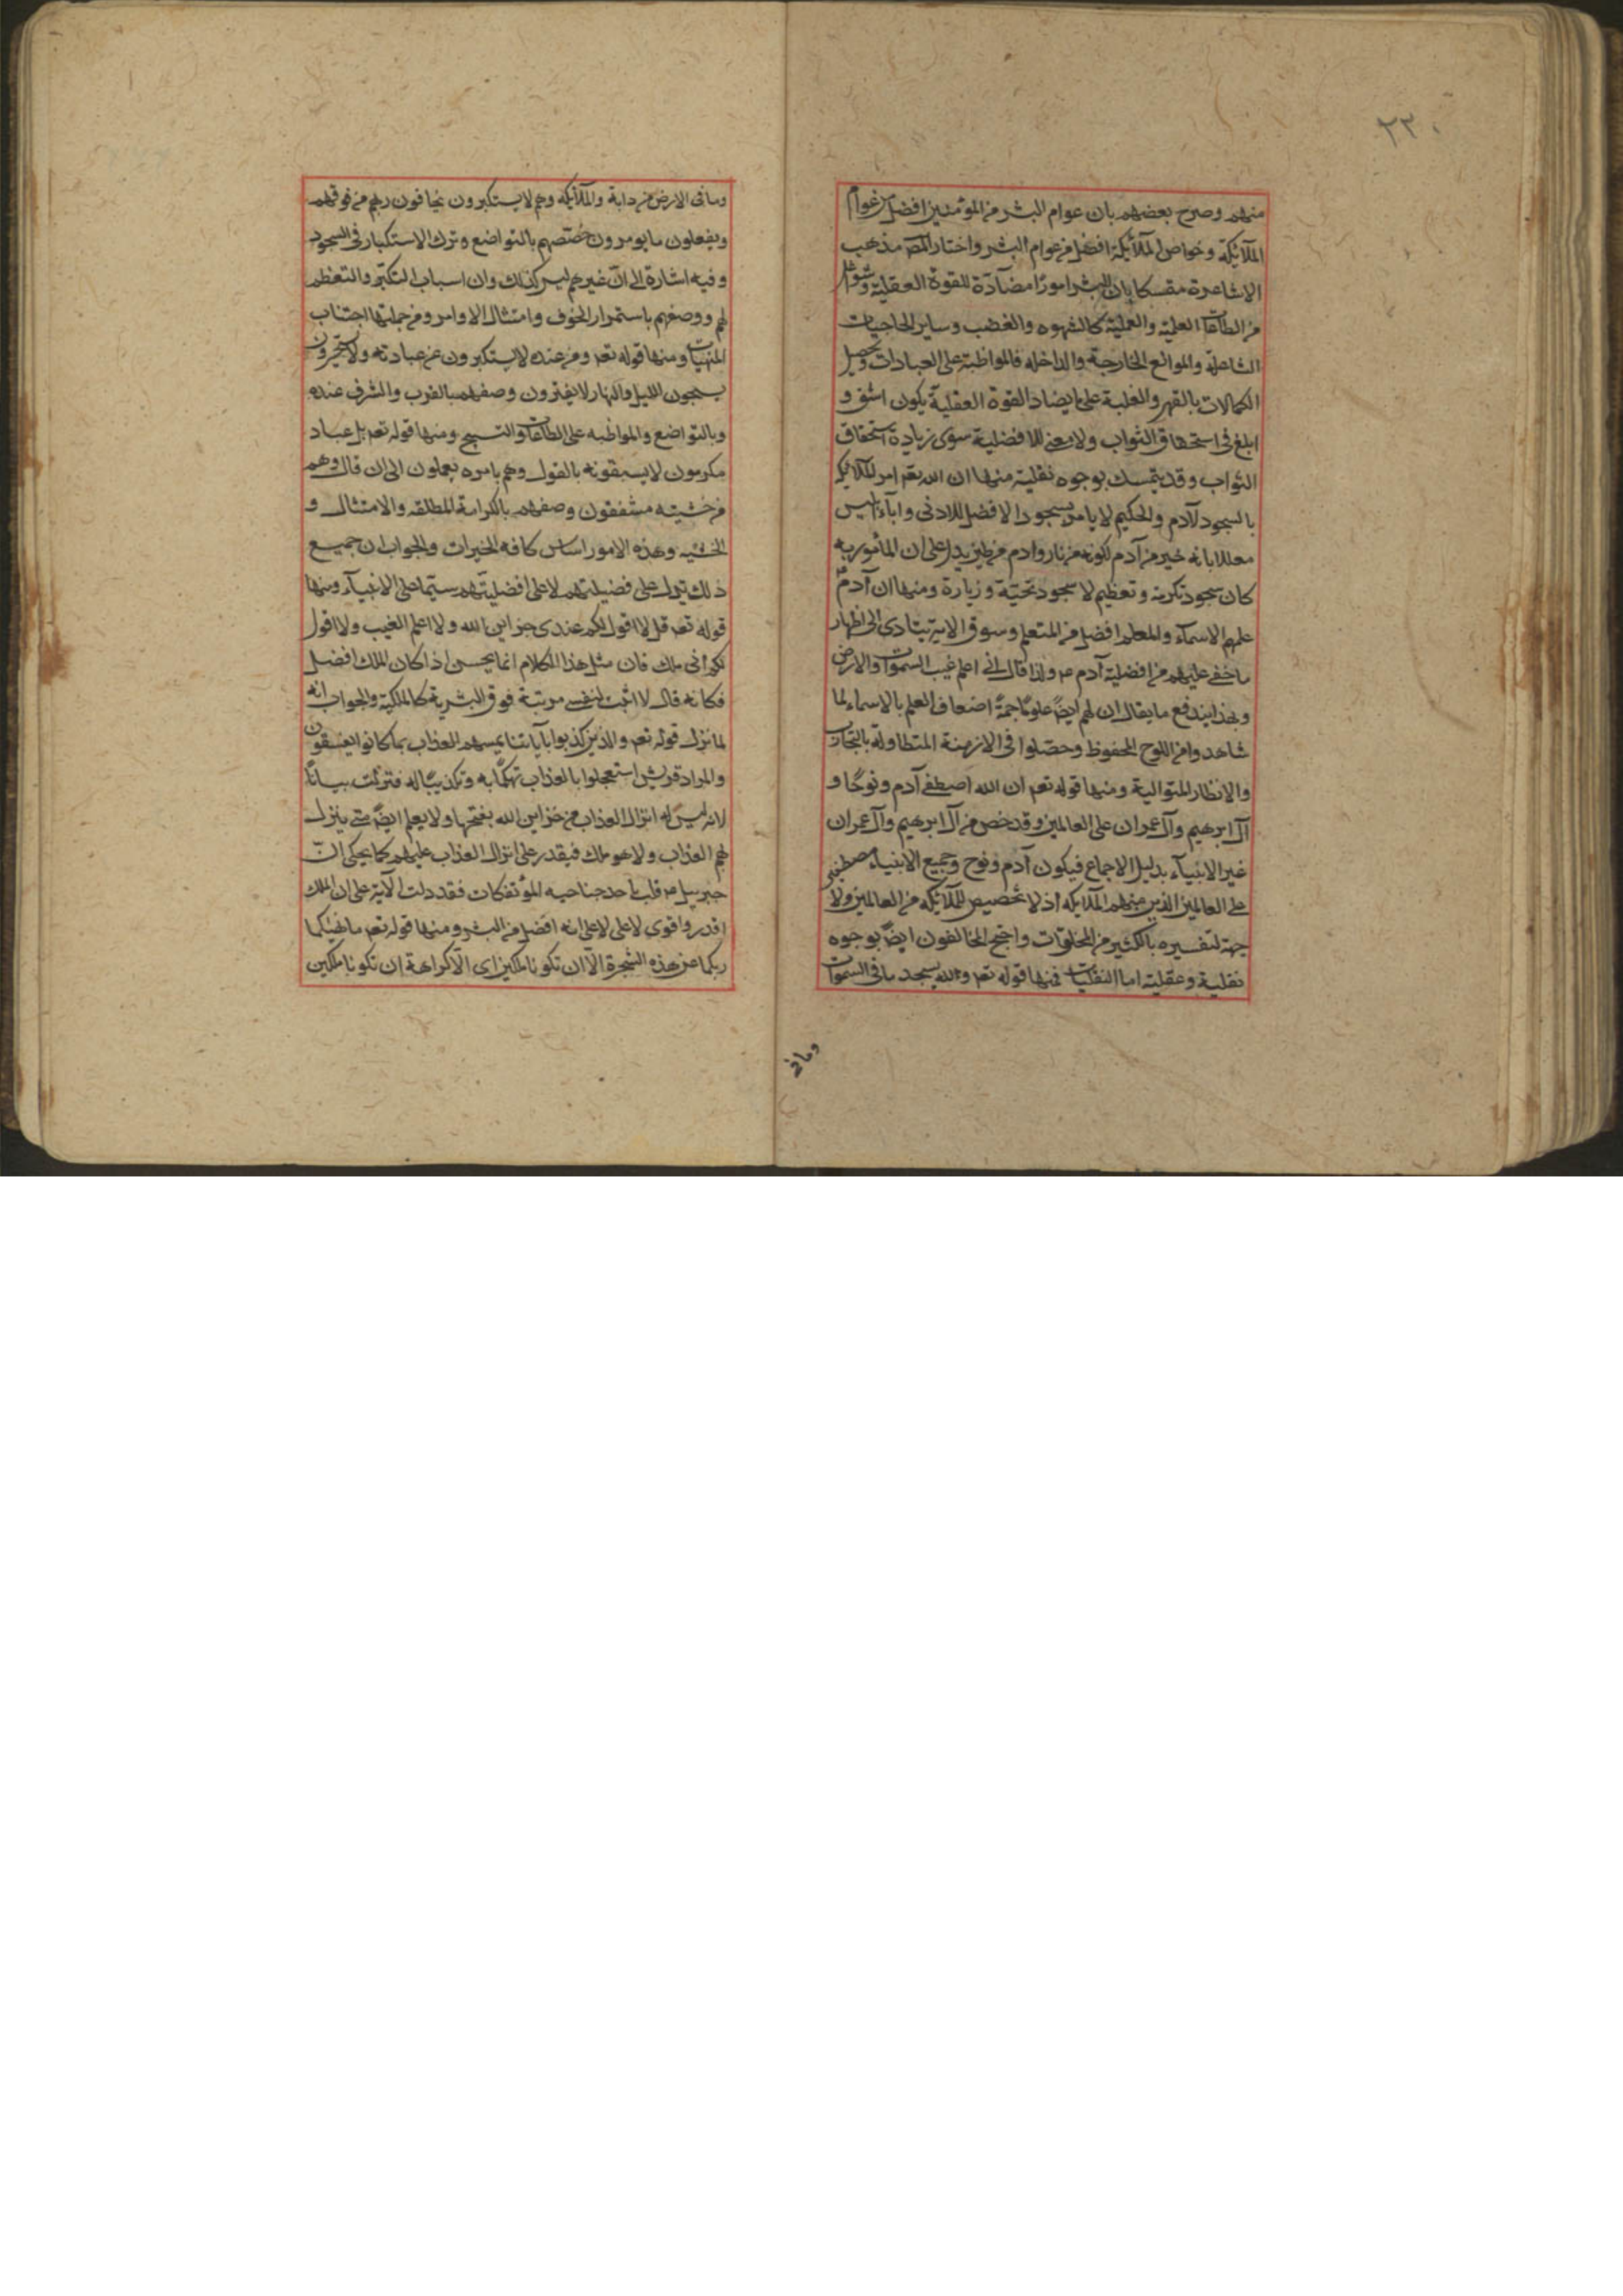 ٢٢٠
منهم وصرح بعضهم بان عوام البشر من المؤمنين افضل من عوام
الملآئكة وخواص الملآئكة افضل من عوام البشر واختار المص مذهب
الاشاعرة متمسكا بان للبشر امورًا مضآدّة للقوة العقلية وشواغل
من الطاعات العلمية والعملية كالشهوه والغضب وساير الحاجيات
الشاغلة والموانع الخارجة والداخله فالمواظبة على العبادات وتحصيل
الكمالات بالقهر والغلبة على ما يضاد القوة العقلية يكون اشق و
ابلغ فى استحقاق الثواب ولا معنى للافضلية سوى زيادة استحقاق
الثواب وقد يتمسك بوجوه نقلية منها ان الله تعم امر الملآئكة
بالسجود لآدم والحكيم لا يامر بسجود الافضل للادنى وابآء ابليس
معللا بانه خير من آدم لكونه من نار وادم من طين يدل على ان المأمور به
كان سجود تكرمة وتعظيم لا سجود تحيّة وزيارة ومنها ان آدم
علمهم الاسمآء والمعلم افضل من المتعلم وسوق الاية ينادى الى اظهار
ما خفى عليهم من افضلية آدم ع ولذا قال انى اعلم غيب السموات والارض
وبهذا يندفع ما يقال ان لهم ايضً علومًا جمةً اضعاف العلم بالاسماء لما
شاهدوا من اللوح المحفوظ وحصّلوا فى الازمنة المتطاولة بالتجارب
والانظار المتوالية ومنها قوله تعم ان الله اصطفى آدم ونوحًا و
آل ابرهيم وآل عمران على العالمين وقد خص من آل ابرهيم وآل عمران
غير الانبيآء بدليل الاجماع فيكون آدم ونوح وجميع الانبياء مصطفين
على العالمين الذين منهم الملآئكه اذ لا تخصيص للملآئكه من العالمين ولا
جهة لتفسيره بالكثير من المخلوقات واحتج المخالفون ايضً بوجوه
نقلية وعقلية اما النقليات فمنها قوله تعم ولله يسجد ما فى السموات
وما فى
وما فى الارض من دابة والملآئكه وهم لا يستكبرون يخافون ربهم من فوقهم
ويفعلون ما يومرون خصّصهم بالتواضع وترك الاستكبار فى السجود
وفيه اشارة الى انّ غيرهم ليس كذلك وان اسباب التكبّر والتعظم
لهم ووصفهم باستمرار الخوف وامتثال الاوامر ومن جملتها اجتناب
المنهيات ومنها قوله تعم ومن عنده لا يستكبرون عن عبادته ولا يستحسرون
يسبحون الليل والنهار لا يفترون وصفهم بالقرب والشرف عنده
وبالتواضع والمواظبه على الطاعات والتسبيح ومنها قوله تعم بل عباد
مكرمون لا يسبقونه بالقول وهم بامره يعملون الى ان قال وهم
من خشيته مشفقون وصفهم بالكرامة المطلقه والامتثال و
الخشيه وهذه الامور اساس كافه الخيرات والجواب ان جميع
ذلك يدل على فضيلتهم لا على افضليّتهم سيّما على الانبيآء ومنها
قوله تعم قل لا اقول لكم عندى خزاين الله ولا اعلم الغيب ولا اقول
لكم انى ملك فان مثل هذا الكلام انما يحسن اذا كان الملك افضل
فكانه قال لا اثبت لنفسى مرتبة فوق البشرية كالملكية والجواب انه
لما نزل قوله تعم والذين كذبوا بآياتنا يمسهم العذاب بما كانوا يفسقون
والمراد قريش استعجلوا بالعذاب تهكّمًا به وتكذيبًا له فنزلت بيانًا
لانه ليس له انزال العذاب من خزاين الله بفتحها ولا يعلم ايضً متى ينزل
لهم العذاب ولا هو ملك فيقدر على انزال العذاب عليهم كما يحكى انّ
جبرييل ع قلب باحد جناحيه المؤتفكات فقد دلت الآية على ان الملك
اقدر واقوى لا على انه افضل من البشر ومنها قوله تعم ما نهيكما
ربكما عن هذه الشجرة الّا ان تكونا ملكين اى الّا كراهة ان تكونا ملكين